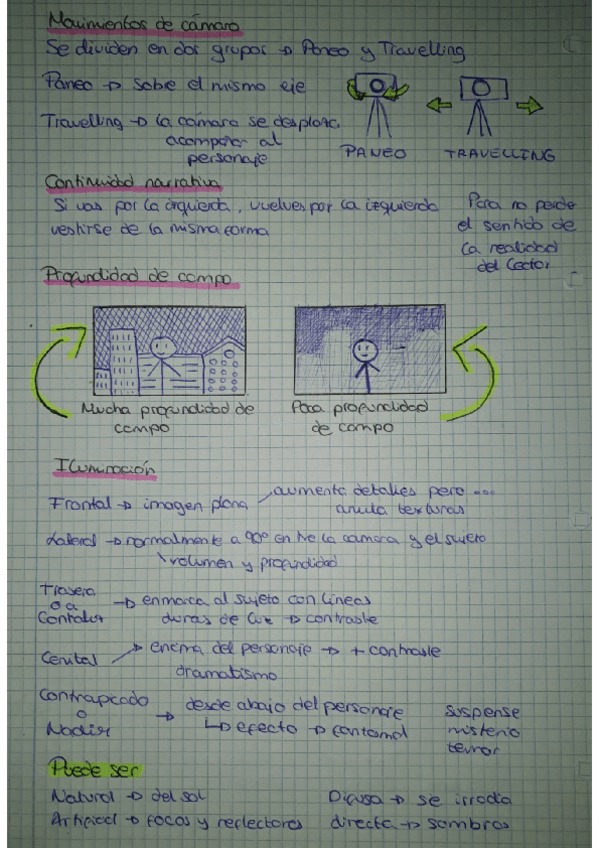 Movimientos de cámara
Se dividen en dos grupos → Paneo y Travelling
Paneo → Sobre el mismo eje
Travelling → la cámara se desplaza
acompañar al
personaje
PANEO
TRAVELLING
Continuidad narrativa
Si vas por la izquierda, vuelves por la izquierda
vestirse de la misma forma
Para no perder
el sentido de
la realidad
del lector
Profundidad de campo
Mucha profundidad de
campo
Poca profundidad
de campo
Iluminación
Frontal → imagen plana
aumenta detalles pero ...
anula texturas
Lateral → normalmente a 90º entre la camara y el sujeto
volumen y profundidad
Trasera
o a
Contraluz
→ enmarca al sujeto con líneas
duras de luz → contraste
Cenital → encima del personaje → + contraste
dramatismo
Contrapicado
o
Nadir
→ desde abajo del personaje
↳ efecto → fantasmal
suspense
misterio
terror
Puede ser
Natural → del sol
Artificial → focos y reflectores
Difusa → se irradia
directa → sombras